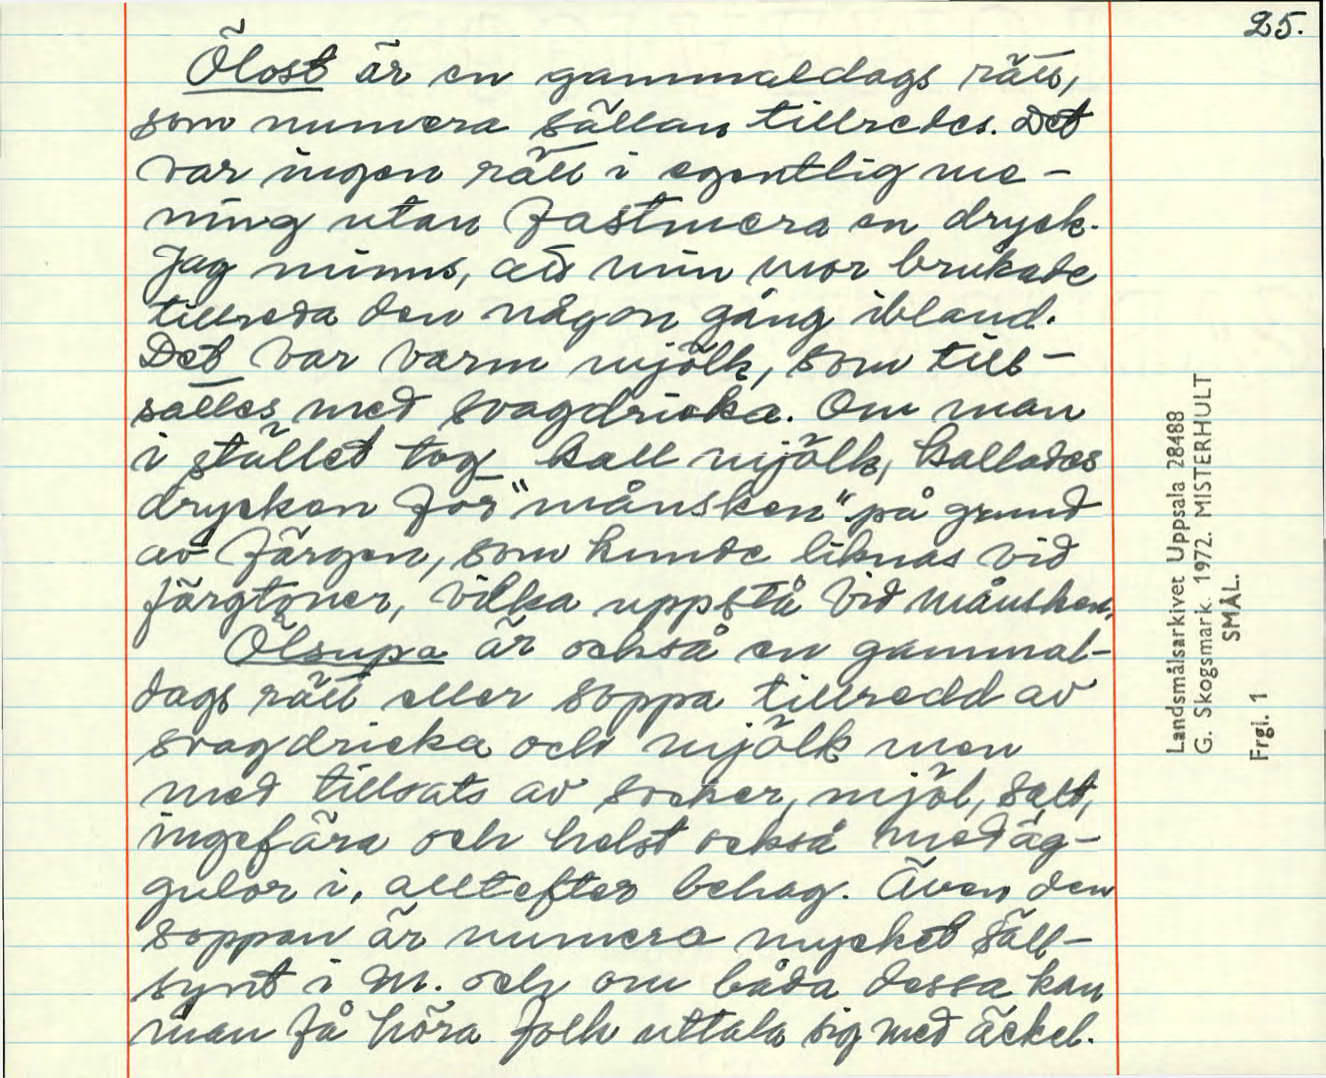 25.
Ölost är en gammaldags rätt,
som numera sällan tillredes. Det
var ingen rätt i egentlig me-
ning utan fastmera en dryck.
Jag minns, att min mor brukade
tillreda den någon gång ibland.
Det var varm mjölk, som till-
sattes med svagdricka. Om man
i stället tog kall mjölk, kallades
drycken för "månsken" på grund
av färgen, som kunde liknas vid
färgtoner, vilka uppstå vid månsken.
Ölsupa är också en gammal-
dags rätt eller soppa tillredd av
svagdricka och mjölk men
med tillsats av socker, mjöl, salt,
ingefära och helst också med äg-
gulor i, alltefter behag. Även den
soppan är numera mycket säll-
synt i M. och om båda dessa kan
man få höra folk uttala sig med äckel.
Landsmålsarkivet Uppsala 28488
G. Skogsmark. 1972. MISTERHULT
SMÅL.
Frgl. 1